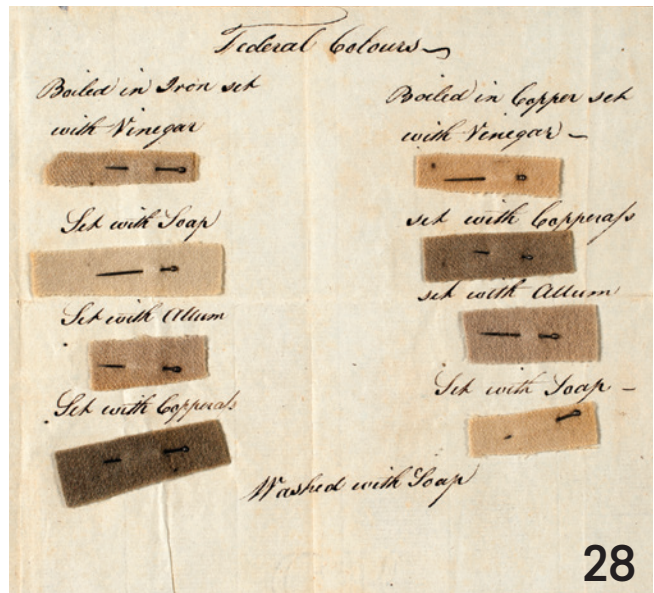 Federal Colours
Boiled in Iron set
with Vinegar
Set with Soap
Set with Allum
Set with Copperass
Boiled in Copper set
with Vinegar –
set with Copperass
set with Allum
Set with Soap –
Washed with Soap
28